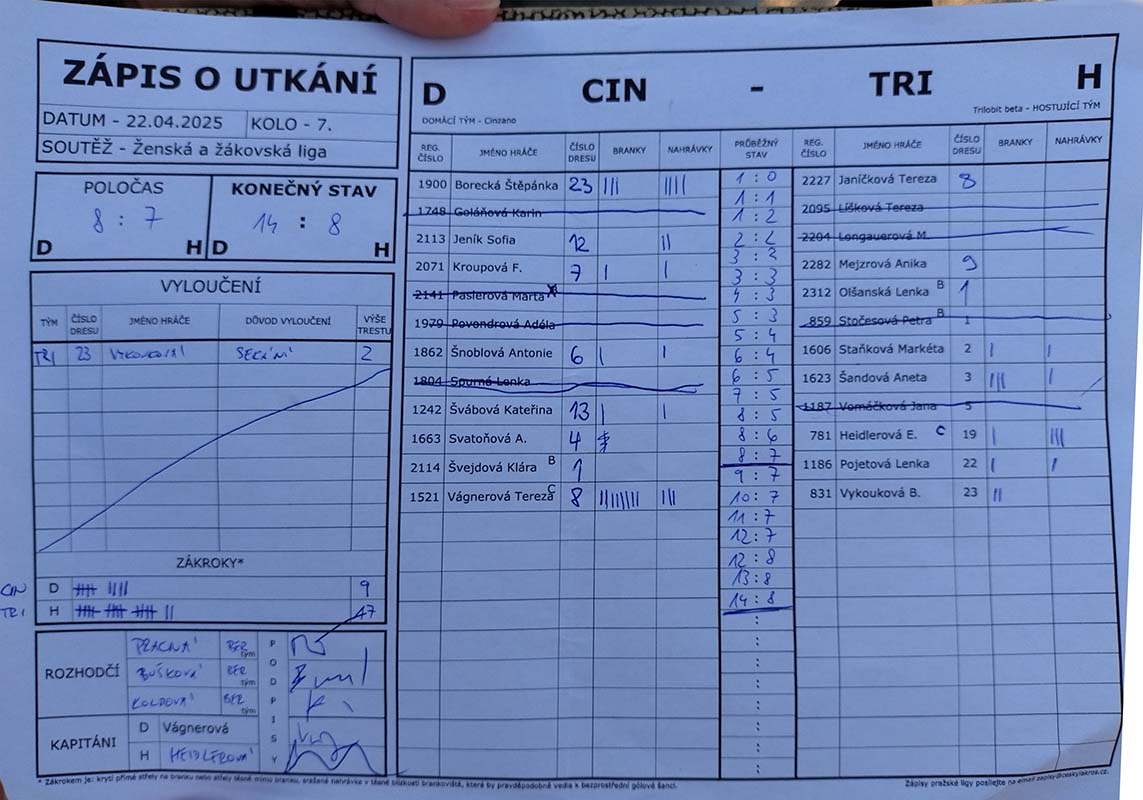 ZÁPIS O UTKÁNÍ
DATUM - 22.04.2025 KOLO - 7.
SOUTĚŽ - Ženská a žákovská liga
POLOČAS KONEČNÝ STAV
8 : 7 14 : 8
D H D H
VYLOUČENÍ
TÝM ČÍSLO DRESU JMÉNO HRÁČE DŮVOD VYLOUČENÍ VÝŠE TRESTU
TRI 23 VYKOUKOVÁ SEKÁNÍ 2
ZÁKROKY*
CIN D 9
TRI H 17
ROZHODČÍ PODPISY
PRACNÁ BER tým
BUŠKOVÁ BER tým
KOLDOVÁ BER tým
KAPITÁNI
D Vágnerová
H HEIDLEROVÁ
D CIN - TRI H
DOMÁCÍ TÝM - Cinzano Trilobit beta - HOSTUJÍCÍ TÝM
REG. ČÍSLO JMÉNO HRÁČE ČÍSLO DRESU BRANKY NAHRÁVKY PRŮBĚŽNÝ STAV REG. ČÍSLO JMÉNO HRÁČE ČÍSLO DRESU BRANKY NAHRÁVKY
1900 Borecká Štěpánka 23 ||| ||||
1748 Goláňová Karin
2113 Jeník Sofia 12 ||
2071 Kroupová F. 7 | |
2141 Paslerová Marta
1979 Povondrová Adéla
1862 Šnoblová Antonie 6 | |
1804 Spurná Lenka
1242 Švábová Kateřina 13 | |
1663 Svatoňová A. 4
2114 Švejdová Klára B 1
1521 Vágnerová Tereza C 8 |||||||| |||
1 : 0
1 : 1
1 : 2
2 : 2
3 : 2
3 : 3
4 : 3
5 : 3
5 : 4
6 : 4
6 : 5
7 : 5
8 : 5
8 : 6
8 : 7
9 : 7
10 : 7
11 : 7
12 : 7
12 : 8
13 : 8
14 : 8
2227 Janíčková Tereza 8
2095 Líšková Tereza
2204 Longauerová M.
2282 Mejzrová Anika 9
2312 Olšanská Lenka B 1
859 Stočesová Petra B 1
1606 Staňková Markéta 2 | |
1623 Šandová Aneta 3 ||| |
1187 Vomáčková Jana 5
781 Heidlerová E. C 19 | |||
1186 Pojetová Lenka 22 | |
831 Vykouková B. 23 ||
* Zákrokem je: krytí přímé střely na branku nebo střely těsně mimo branku, sražená nahrávka v těsné blízkosti brankoviště, která by pravděpodobně vedla k bezprostřední gólové šanci.
Zápisy pražské ligy posílejte na email zapisy@ceskylakros.cz.